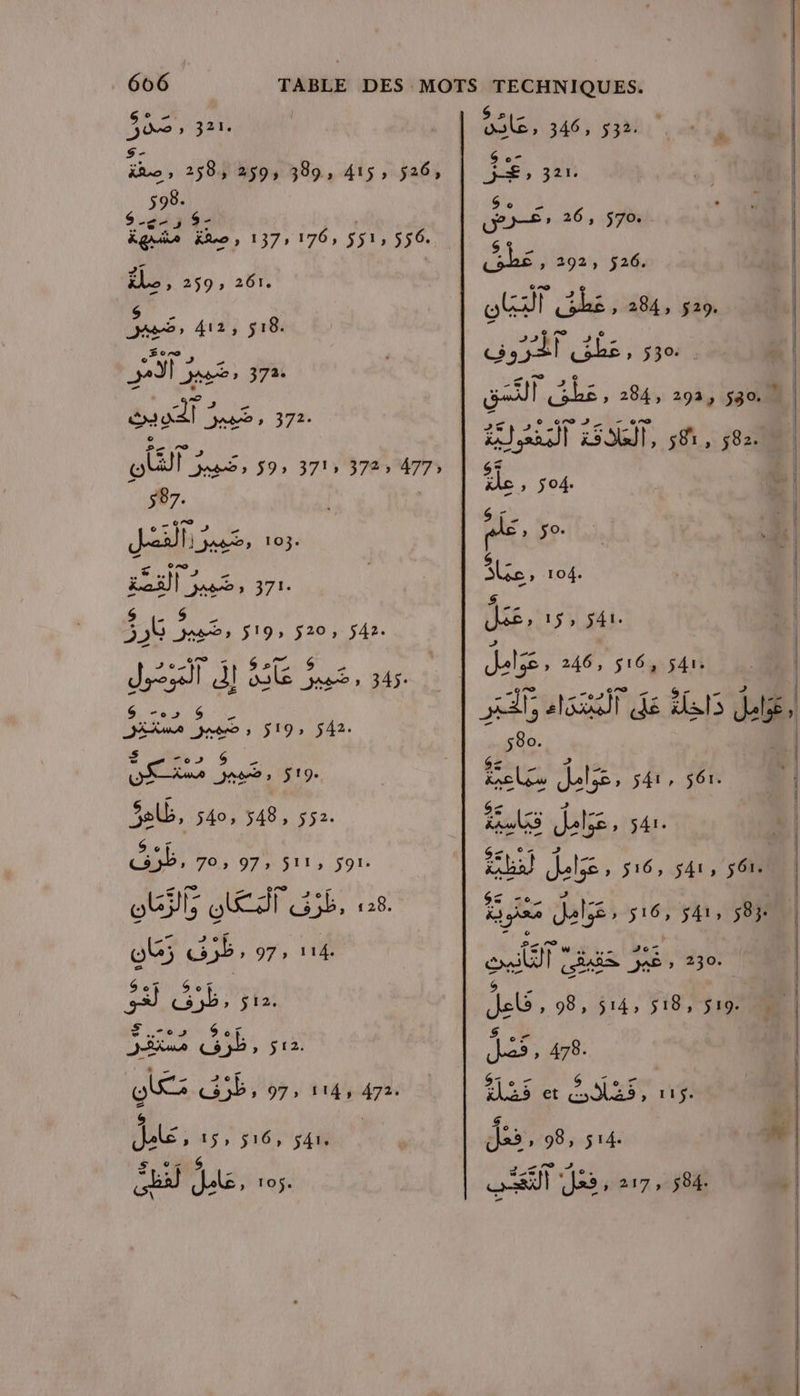 606 TABLE DES MOTS TECHNIQUES.
صَدْرٌ, 321.
صِفَةٌ, 258, 259, 389, 415, 526,
598.
صِفَةٌ مُشَبَّهَةٌ, 137, 176, 551, 556.
صِلَةٌ, 259, 261.
ضَمِيرٌ, 412, 518.
ضَمِيرُ ٱلْأَمْرِ, 372.
ضَمِيرُ ٱلْحَدِيثِ, 372.
ضَمِيرُ ٱلشَّانِ, 59, 371, 372, 477,
587.
ضَمِيرُ ٱلْفَصْلِ, 103.
ضَمِيرُ ٱلْقِصَّةِ, 371.
ضَمِيرٌ بَارِزٌ, 519, 520, 542.
ضَمِيرٌ عَائِدٌ إِلَى ٱلْمَوْصُولِ, 345.
ضَمِيرٌ مُسْتَتِرٌ, 519, 542.
ضَمِيرٌ مُسْتَكِنٌّ, 519.
ظَاهِرٌ, 540, 548, 552.
ظَرْفٌ, 70, 97, 511, 591.
ظَرْفُ ٱلْمَكَانِ وَٱلزَّمَانِ, 128.
ظَرْفُ زَمَانٍ, 97, 114.
ظَرْفٌ لَغْوٌ, 512.
ظَرْفٌ مُسْتَقَرٌّ, 512.
ظَرْفُ مَكَانٍ, 97, 114, 472.
عَامِلٌ, 15, 516, 541.
عَامِلٌ لَفْظِيٌّ, 105.
عَائِدٌ, 346, 532.
عَجُزٌ, 321.
عَرَضٌ, 26, 570.
عَطْفٌ, 292, 526.
عَطْفُ ٱلْبَيَانِ, 284, 529.
عَطْفُ ٱلْحُرُوفِ, 530.
عَطْفُ ٱلنَّسَقِ, 284, 292, 530.
ٱلْعَلَاقَةُ ٱلْمَفْعُولِيَّةُ, 581, 582.
عِلَّةٌ, 504.
عَلَمٌ, 50.
عِمَادٌ, 104.
عَمَلٌ, 15, 541.
عَوَامِلُ, 246, 516, 541.
عَوَامِلُ دَاخِلَةٌ عَلَى ٱلْمُبْتَدَاءِ وَٱلْخَبَرِ,
580.
عَوَامِلُ سَمَاعِيَّةٌ, 541, 561.
عَوَامِلُ قِيَاسِيَّةٌ, 541.
عَوَامِلُ لَفْظِيَّةٌ, 516, 541, 561.
عَوَامِلُ مَعْنَوِيَّةٌ, 516, 541, 583.
غَيْرُ حَقِيقِيِّ ٱلتَّأْنِيثِ, 230.
فَاعِلٌ, 98, 514, 518, 519.
فَصْلٌ, 478.
فَضْلَةٌ et فَضَلَاتٌ, 115.
فِعْلٌ, 98, 514.
فِعْلُ ٱلتَّعَجُّبِ, 217, 584.